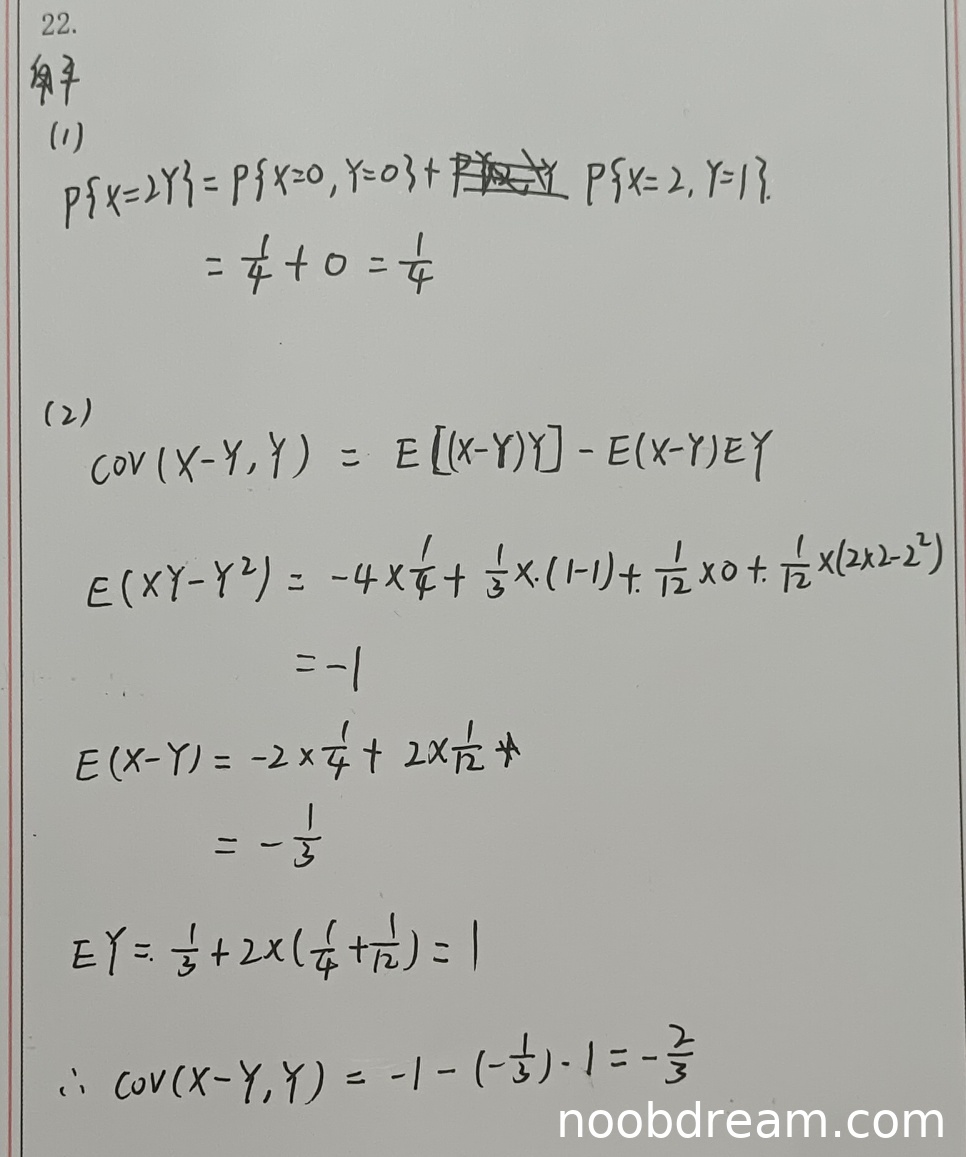 22.
解
(1)
P{X=2Y}=P{X=0,Y=0}+ P{X=2,Y=1}.
= 1/4 + 0 = 1/4
(2)
COV(X-Y,Y) = E[(X-Y)Y] - E(X-Y)EY
E(XY-Y²) = -4×1/4 + 1/3×(1-1)+ 1/12×0+ 1/12×(2×2-2²)
= -1
E(X-Y) = -2×1/4 + 2×1/12
= - 1/3
EY = 1/3 + 2×(1/4+1/12) = 1
∴ COV(X-Y,Y) = -1 - (-1/3)·1 = -2/3
noobdream.com